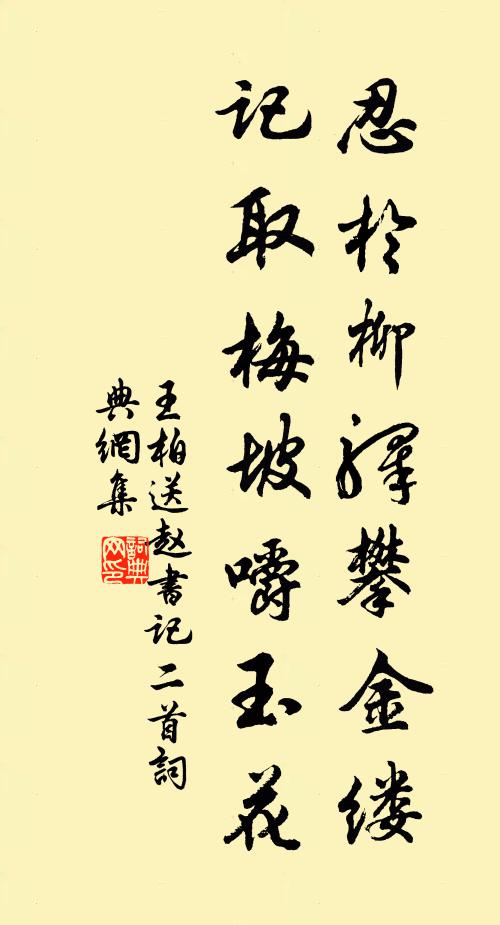 忍於柳驛攀金缕
记取梅坡嚼玉花
王柏送赵書记二首詞
典網集
詞典网印